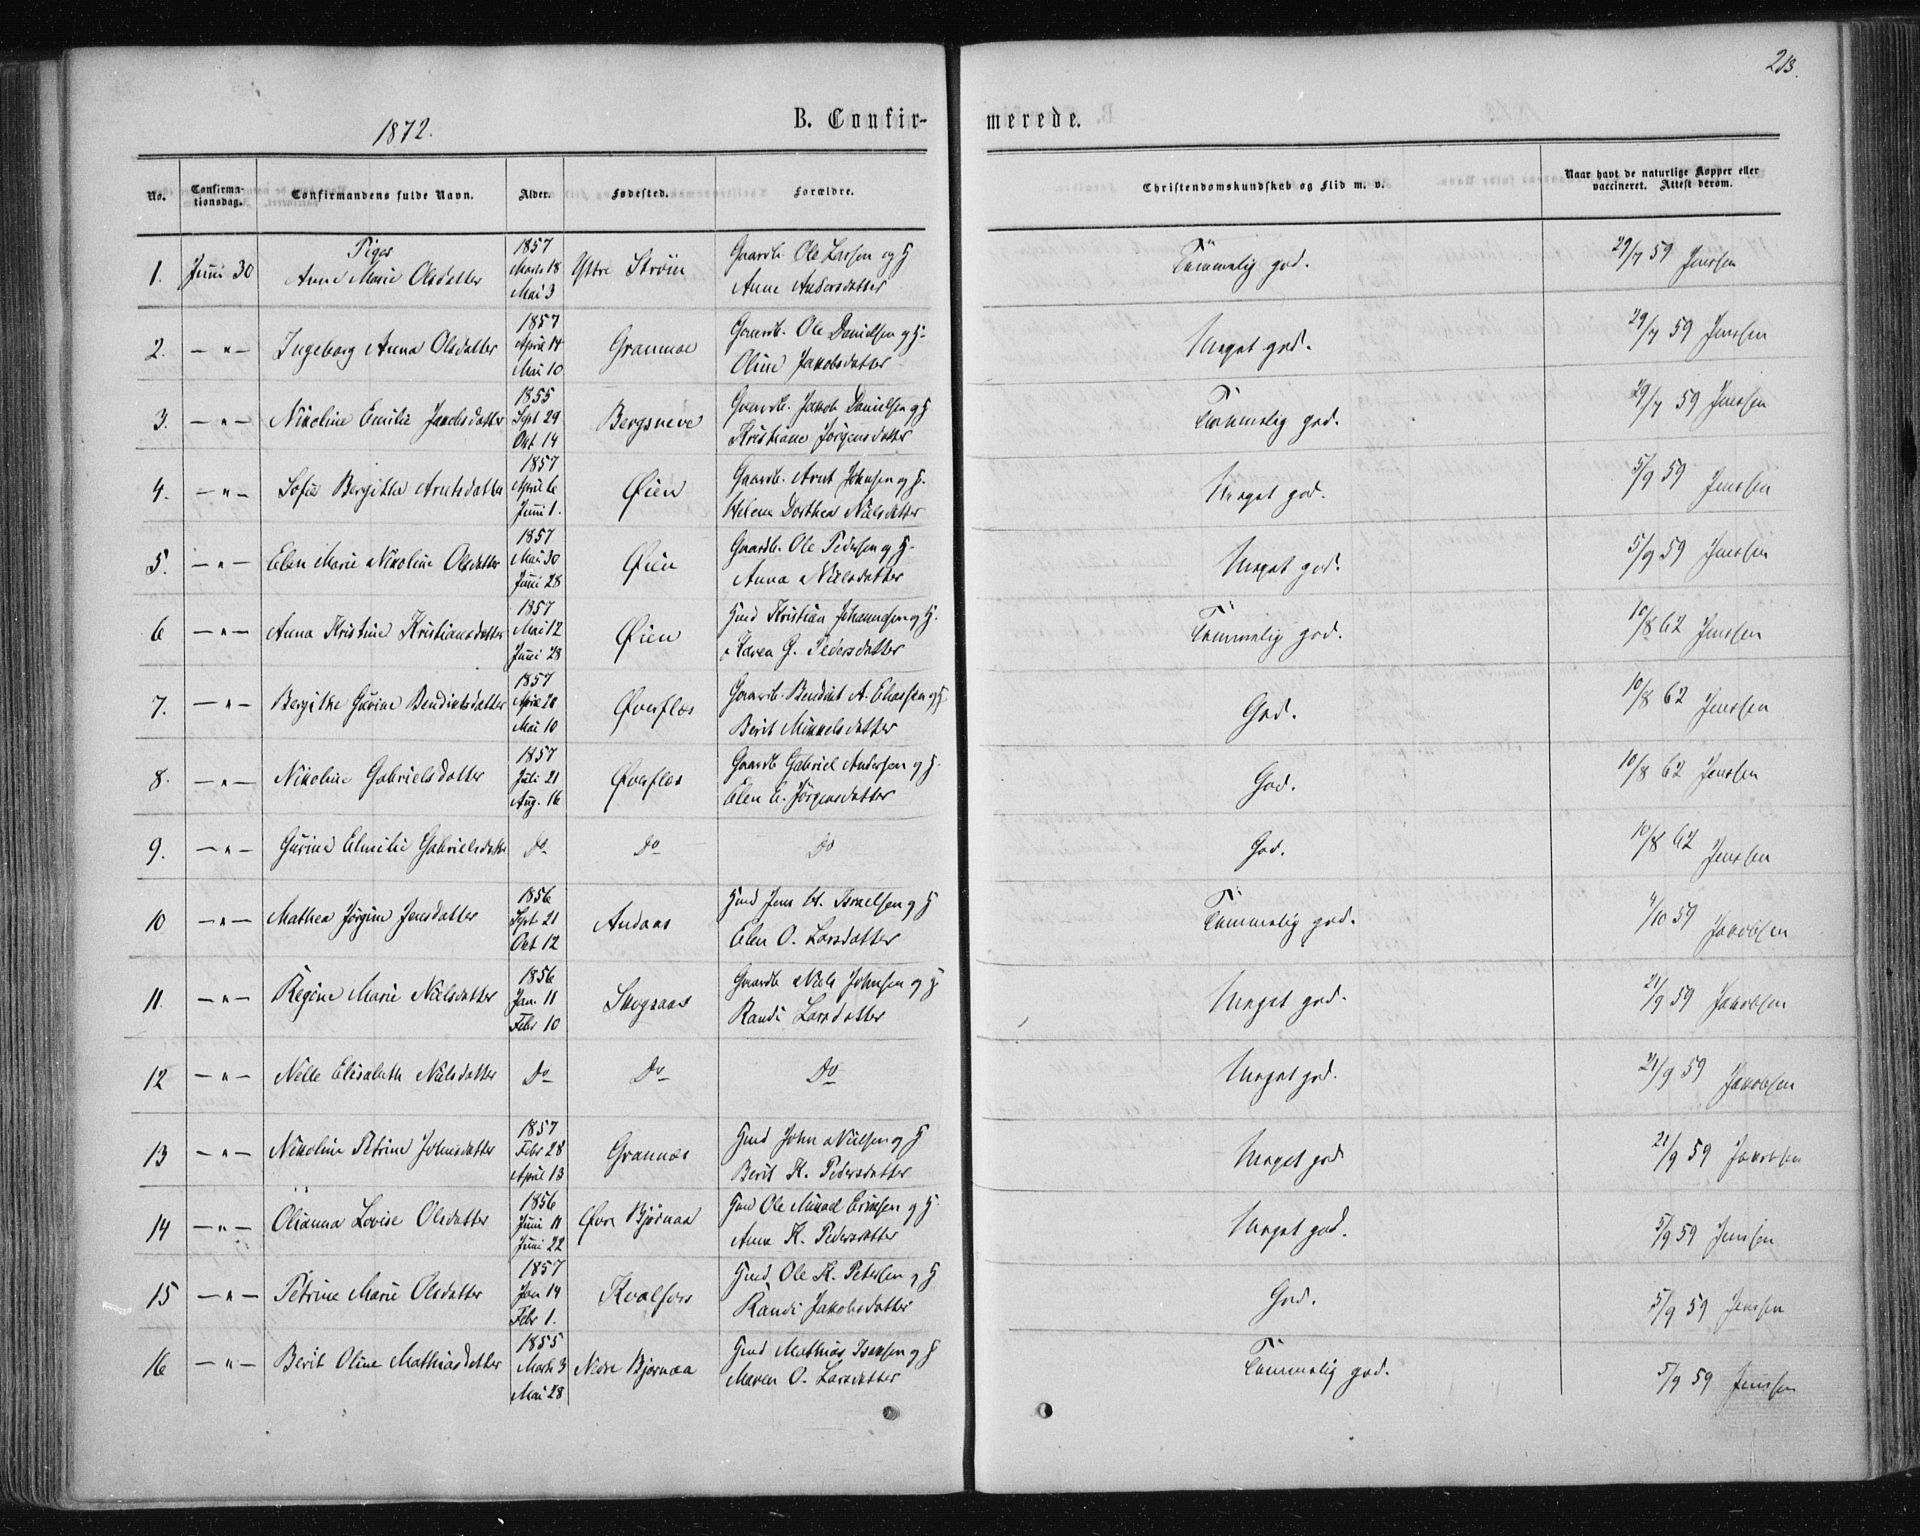 213.
1872. B. Confirmerede.
No. Confirmationsdag. Confirmandens fulde Navn. Alder. Fødested. Forældre. Christendomskundskab og Flid m. v. Naar havt de naturlige Kopper eller vaccineret. Attest derom.
Piger
1. Juni 30 Anne Marie Olsdatter 1857 Marts 18 Mai 3 Ytre Strøm Gaardb. Ole Larsen og H Anne Andersdatter Temmelig god. 29/7 59 Jenssen
2. — " — Ingeborg Anna Olsdatter 1857 April 14 Mai 10 Granmoe Gaardb. Ole Danielsen og H. Oline Jakobsdatter Meget god. 29/7 59 Jenssen
3. — " — Nikoline Emilie Jakobsdatter 1855 Sept 29 Okt 14 Bergsneve Gaardb. Jakob Danielsen og H Kristiane Jørgensdatter Temmelig god. 29/7 59 Jenssen
4. — " — Sofie Bergitte Arntsdatter 1857 April 6 Juni 1. Øien Gaardb. Arnt Johnsen og H. Helene Dorthea Nielsdatter Meget god. 5/9 59 Jenssen
5. — " — Elen Marie Nikoline Olsdatter 1857 Mai 30 Juni 28 Øien Gaardb. Ole Pedersen og H. Anna Nielsdatter Meget god. 5/9 59 Jenssen
6 — " — Anna Kristine Kristiansdatter 1857 Mai 12 Juni 28 Øien Hmd Kristian Johannesen og H. Karen G. Pedersdatter Temmelig god. 10/8 62 Jenssen
7. — " — Bergitte Gurine Bendiktsdatter 1857 April 20 Mai 10 Øverflos Gaardb. Bendikt A. Eliassen og H. Berit Mikkelsdatter God. 10/8 62 Jenssen
8. — " — Nikoline Gabrielsdatter 1857 Juli 21 Aug. 16 Øverflos Gaardb Gabriel Andersen og H. Elen E. Jørgensdatter God. 10/8 62 Jenssen
9. — " — Gurine Emilie Gabrielsdatter Do Do Do God. 10/8 62 Jenssen
10 — " — Mathea Jørgine Jensdatter 1856 Sept 21 Okt 12 Andaas Hmd Jens Israelsen og H Elen O. Larsdatter Temmelig god. /10 59 Jakobsen
11. — " — Regine Marie Nielsdatter 1856 Jan. 11 Febr 10 Skogsaas Gaardb Niels Johnsen og H Randi Larsdatter Meget god. 21/9 59 Jakobsen
12 — " — Nelle Elisabeth Nielsdatter Do Do Do Meget god. 21/9 59 Jakobsen
13 — " — Nikoline Petrine Johnsdatter 1857 Febr 28 April 13 Grannæs Hmd John Nielsen og H Berit K. Pedersdatter Meget god 21/9 59 Jakobsen
14 — " — Olianna Lovise Olsdatter 1856 Juni 11 Juni 22 Øvre Bjørnaa Hmd Ole Mikael Eriksen og H. Anna K. Pedersdatter Meget god. 5/9 59 Jenssen
15 — " — Petrine Marie Olsdatter 1857 Jan 14 Febr 1. Kvalfors Hmd Ole K. Petersen og H Randi Jakobsdatter God. 5/9 59 Jenssen
16 — " — Berit Oline Mathiasdatter 1855 Marts 3 Mai 28 Nedre Bjørnaa Hmd Mathias Isaksen og H Maren O. Larsdatter Temmelig god. 5/9 59 Jenssen